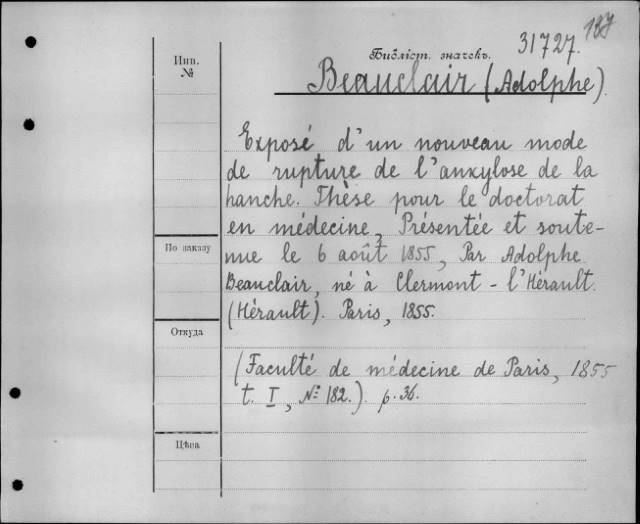 187
31727.
Библіот. значекъ.
Инв.
№
Beauclair (Adolphe).
Exposé d'un nouveau mode
de rupture de l'ankylose de la
hanche. Thèse pour le doctorat
en médecine, Présentée et soute-
nue le 6 août 1855, Par Adolphe
Beauclair, né à Clermont-l'Hérault.
(Hérault). Paris, 1855.
По заказу
Откуда
(Faculté de médecine de Paris, 1855
t. I, № 182.). p. 36.
Цѣна